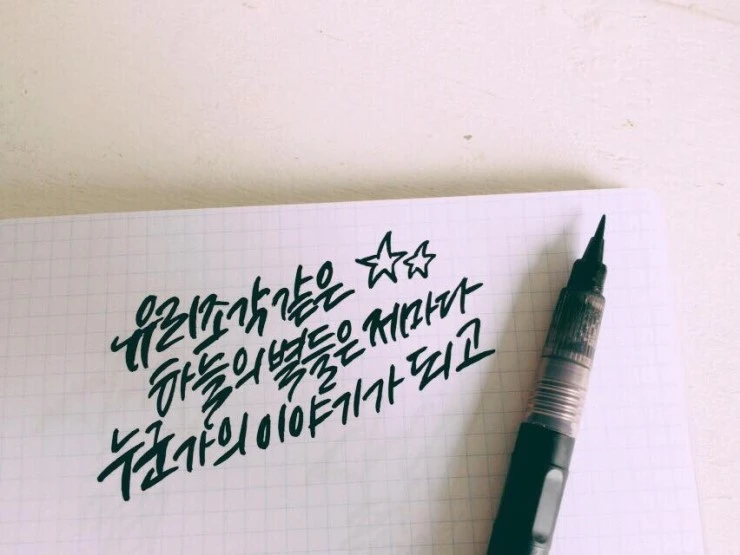 유리조각같은 ☆☆
하늘의 별들은 제마다
누군가의 이야기가 되고